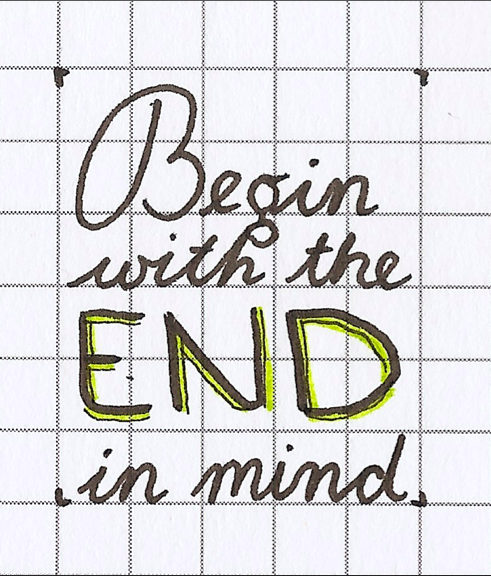 Begin
with the
END
in mind.